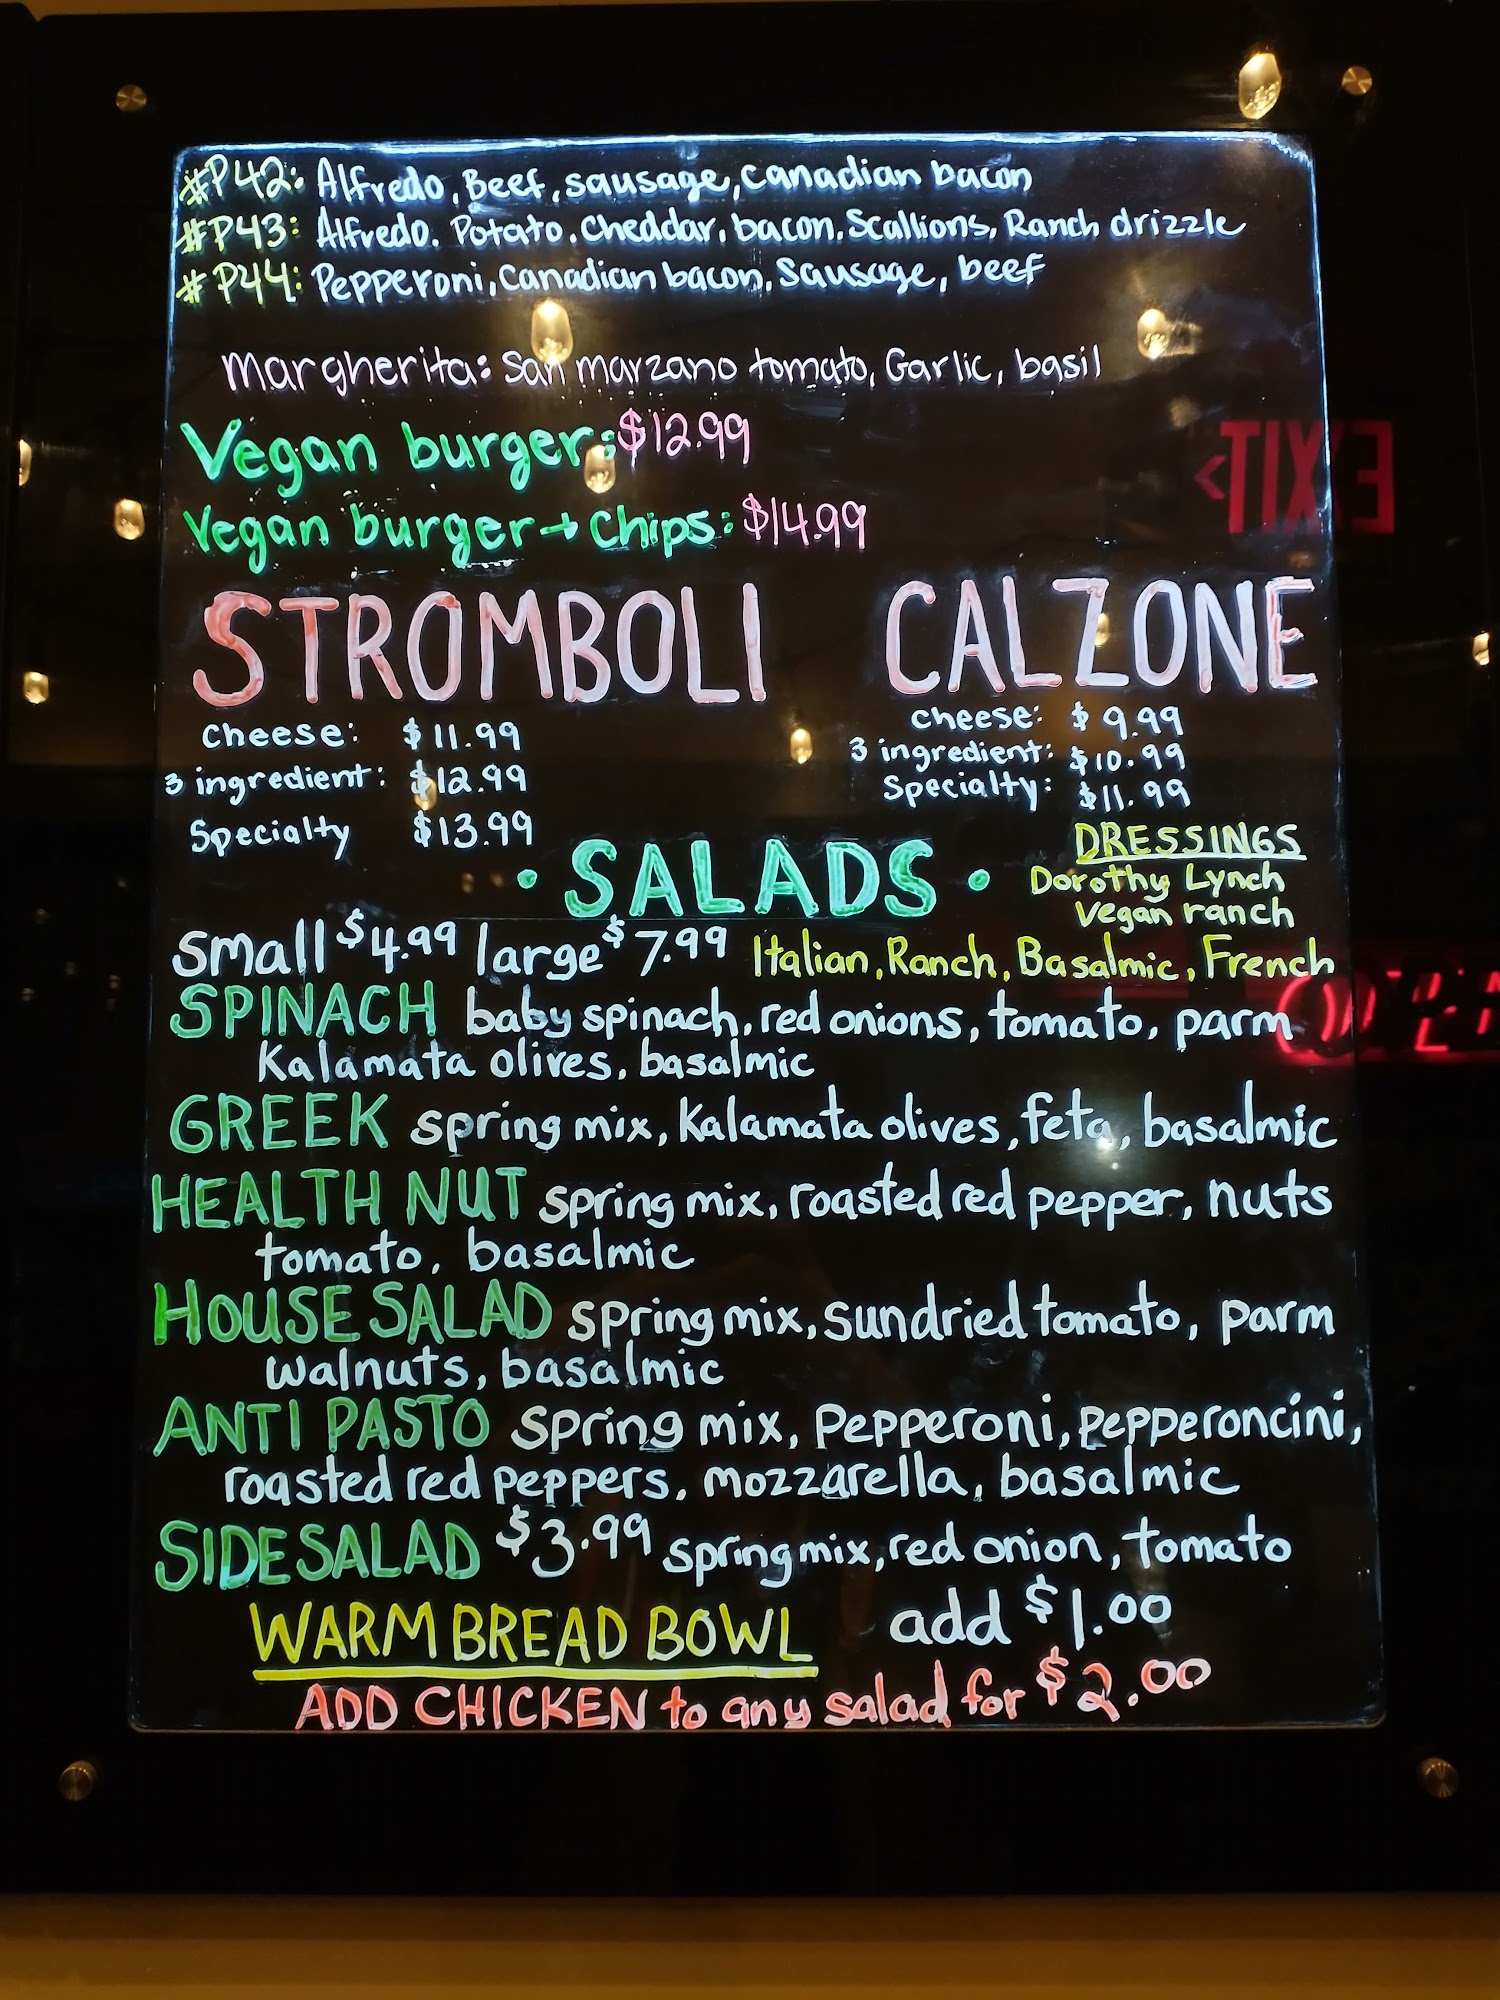 #P42: Alfredo, Beef, sausage, Canadian bacon
#P43: Alfredo. Potato, Cheddar, bacon, Scallions, Ranch drizzle
#P44: Pepperoni, Canadian bacon, Sausage, beef
Margherita: San marzano tomato, Garlic, basil
Vegan burger: $12.99
Vegan burger + Chips: $14.99
STROMBOLI CALZONE
Cheese: $11.99
3 ingredient: $12.99
Specialty $13.99
Cheese: $9.99
3 ingredient: $10.99
Specialty: $11.99
• SALADS •
DRESSINGS
Dorothy Lynch
Vegan ranch
Small $4.99 large $7.99 Italian, Ranch, Basalmic, French
SPINACH baby spinach, red onions, tomato, parm
Kalamata olives, basalmic
GREEK spring mix, Kalamata olives, feta, basalmic
HEALTH NUT spring mix, roasted red pepper, nuts
tomato, basalmic
HOUSE SALAD spring mix, sundried tomato, parm
walnuts, basalmic
ANTI PASTO spring mix, Pepperoni, pepperoncini,
roasted red peppers, mozzarella, basalmic
SIDE SALAD $3.99 spring mix, red onion, tomato
WARM BREAD BOWL add $1.00
ADD CHICKEN to any salad for $2.00
EXIT
OPEN